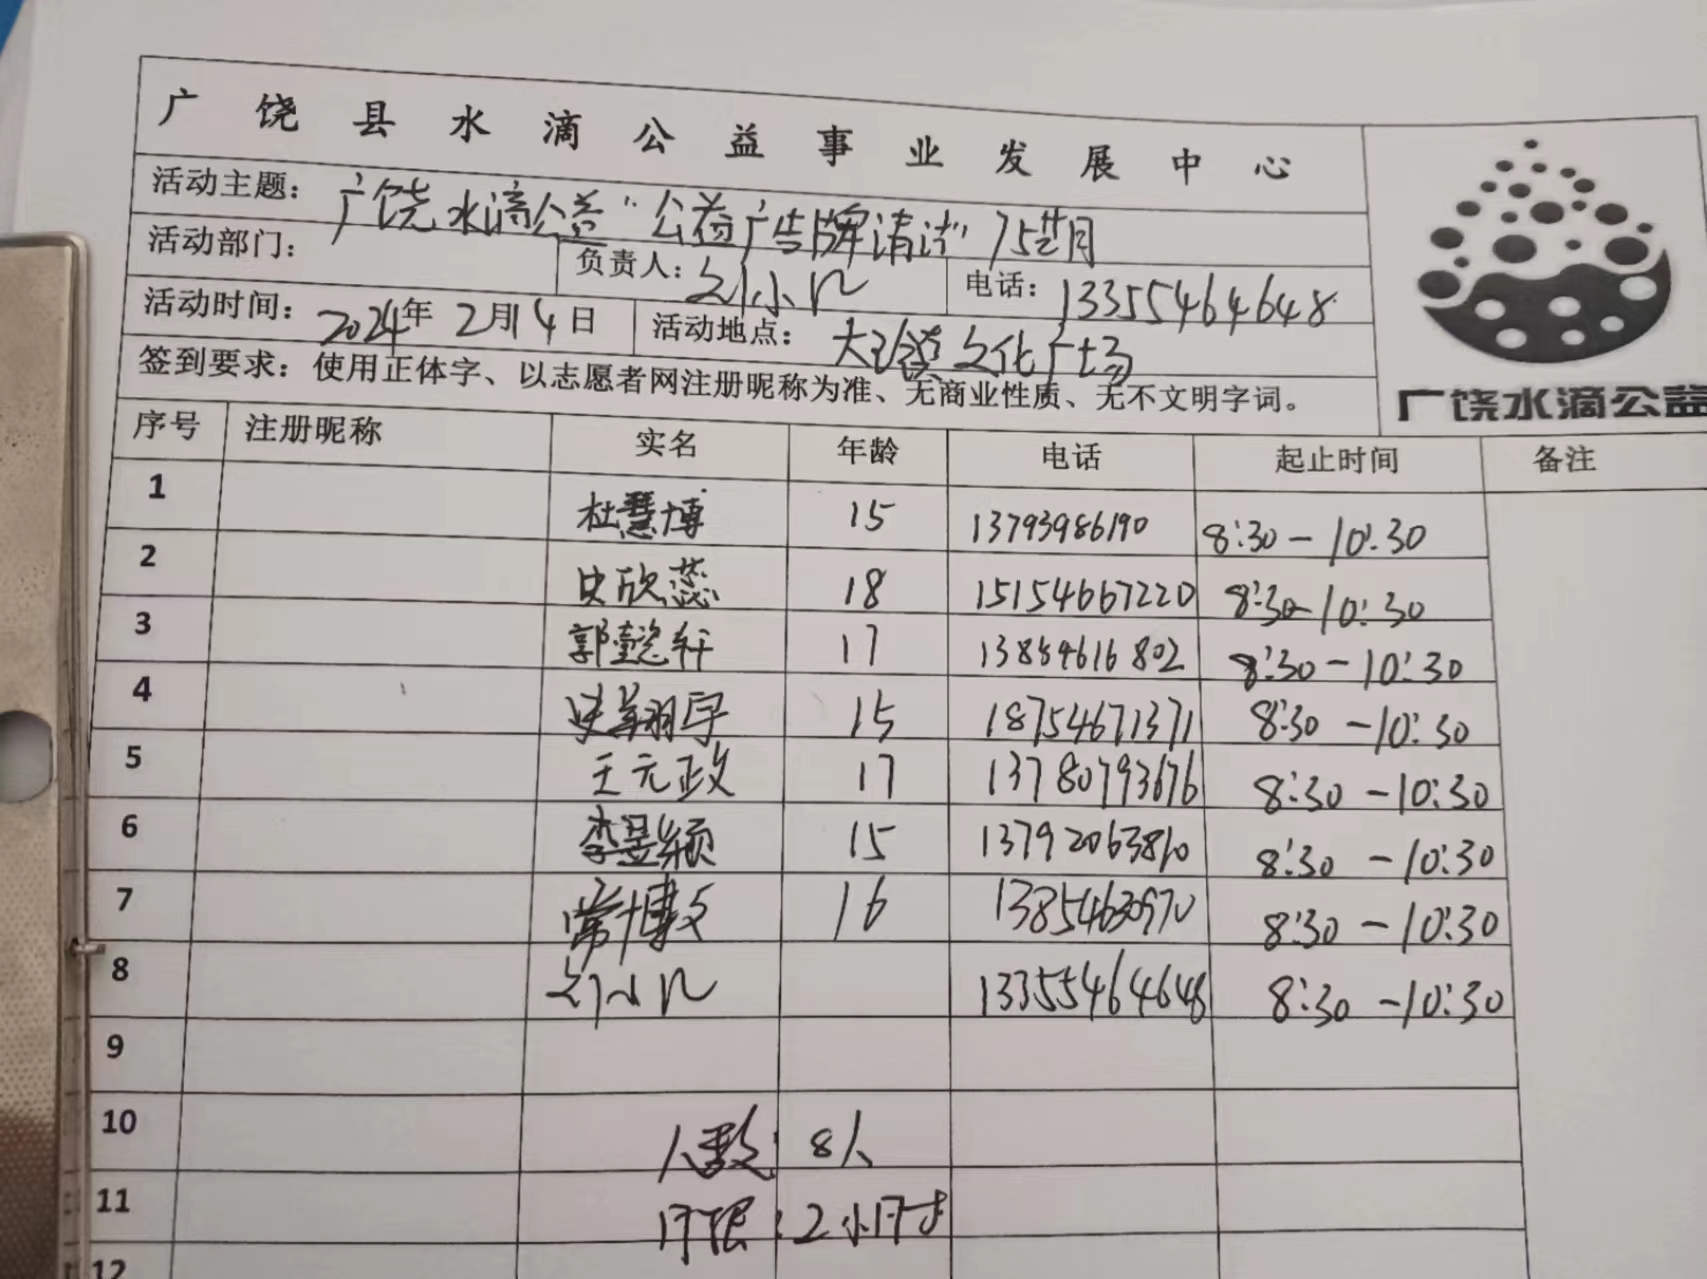 广饶县水滴公益事业发展中心
活动主题：广饶水滴公益"公益广告牌清洁"
活动部门： 负责人：刘小 电话：13355464648
活动时间：2024年2月4日 活动地点：大王镇文化广场
签到要求：使用正体字、以志愿者网注册昵称为准、无商业性质、无不文明字词。
广饶水滴公益
序号 注册昵称 实名 年龄 电话 起止时间 备注
1 杜慧博 15 13793986190 8:30-10:30
2 史欣蕊 18 15154667220 8:30-10:30
3 郭懿轩 17 13854616802 8:30-10:30
4 史翔宇 15 18754671371 8:30-10:30
5 王元政 17 13780793676 8:30-10:30
6 李昱颖 15 8:30-10:30
7 常博文 16 8:30-10:30
8 刘小 13355464648 8:30-10:30
9
10 人数：8人
11 时限：2小时
12